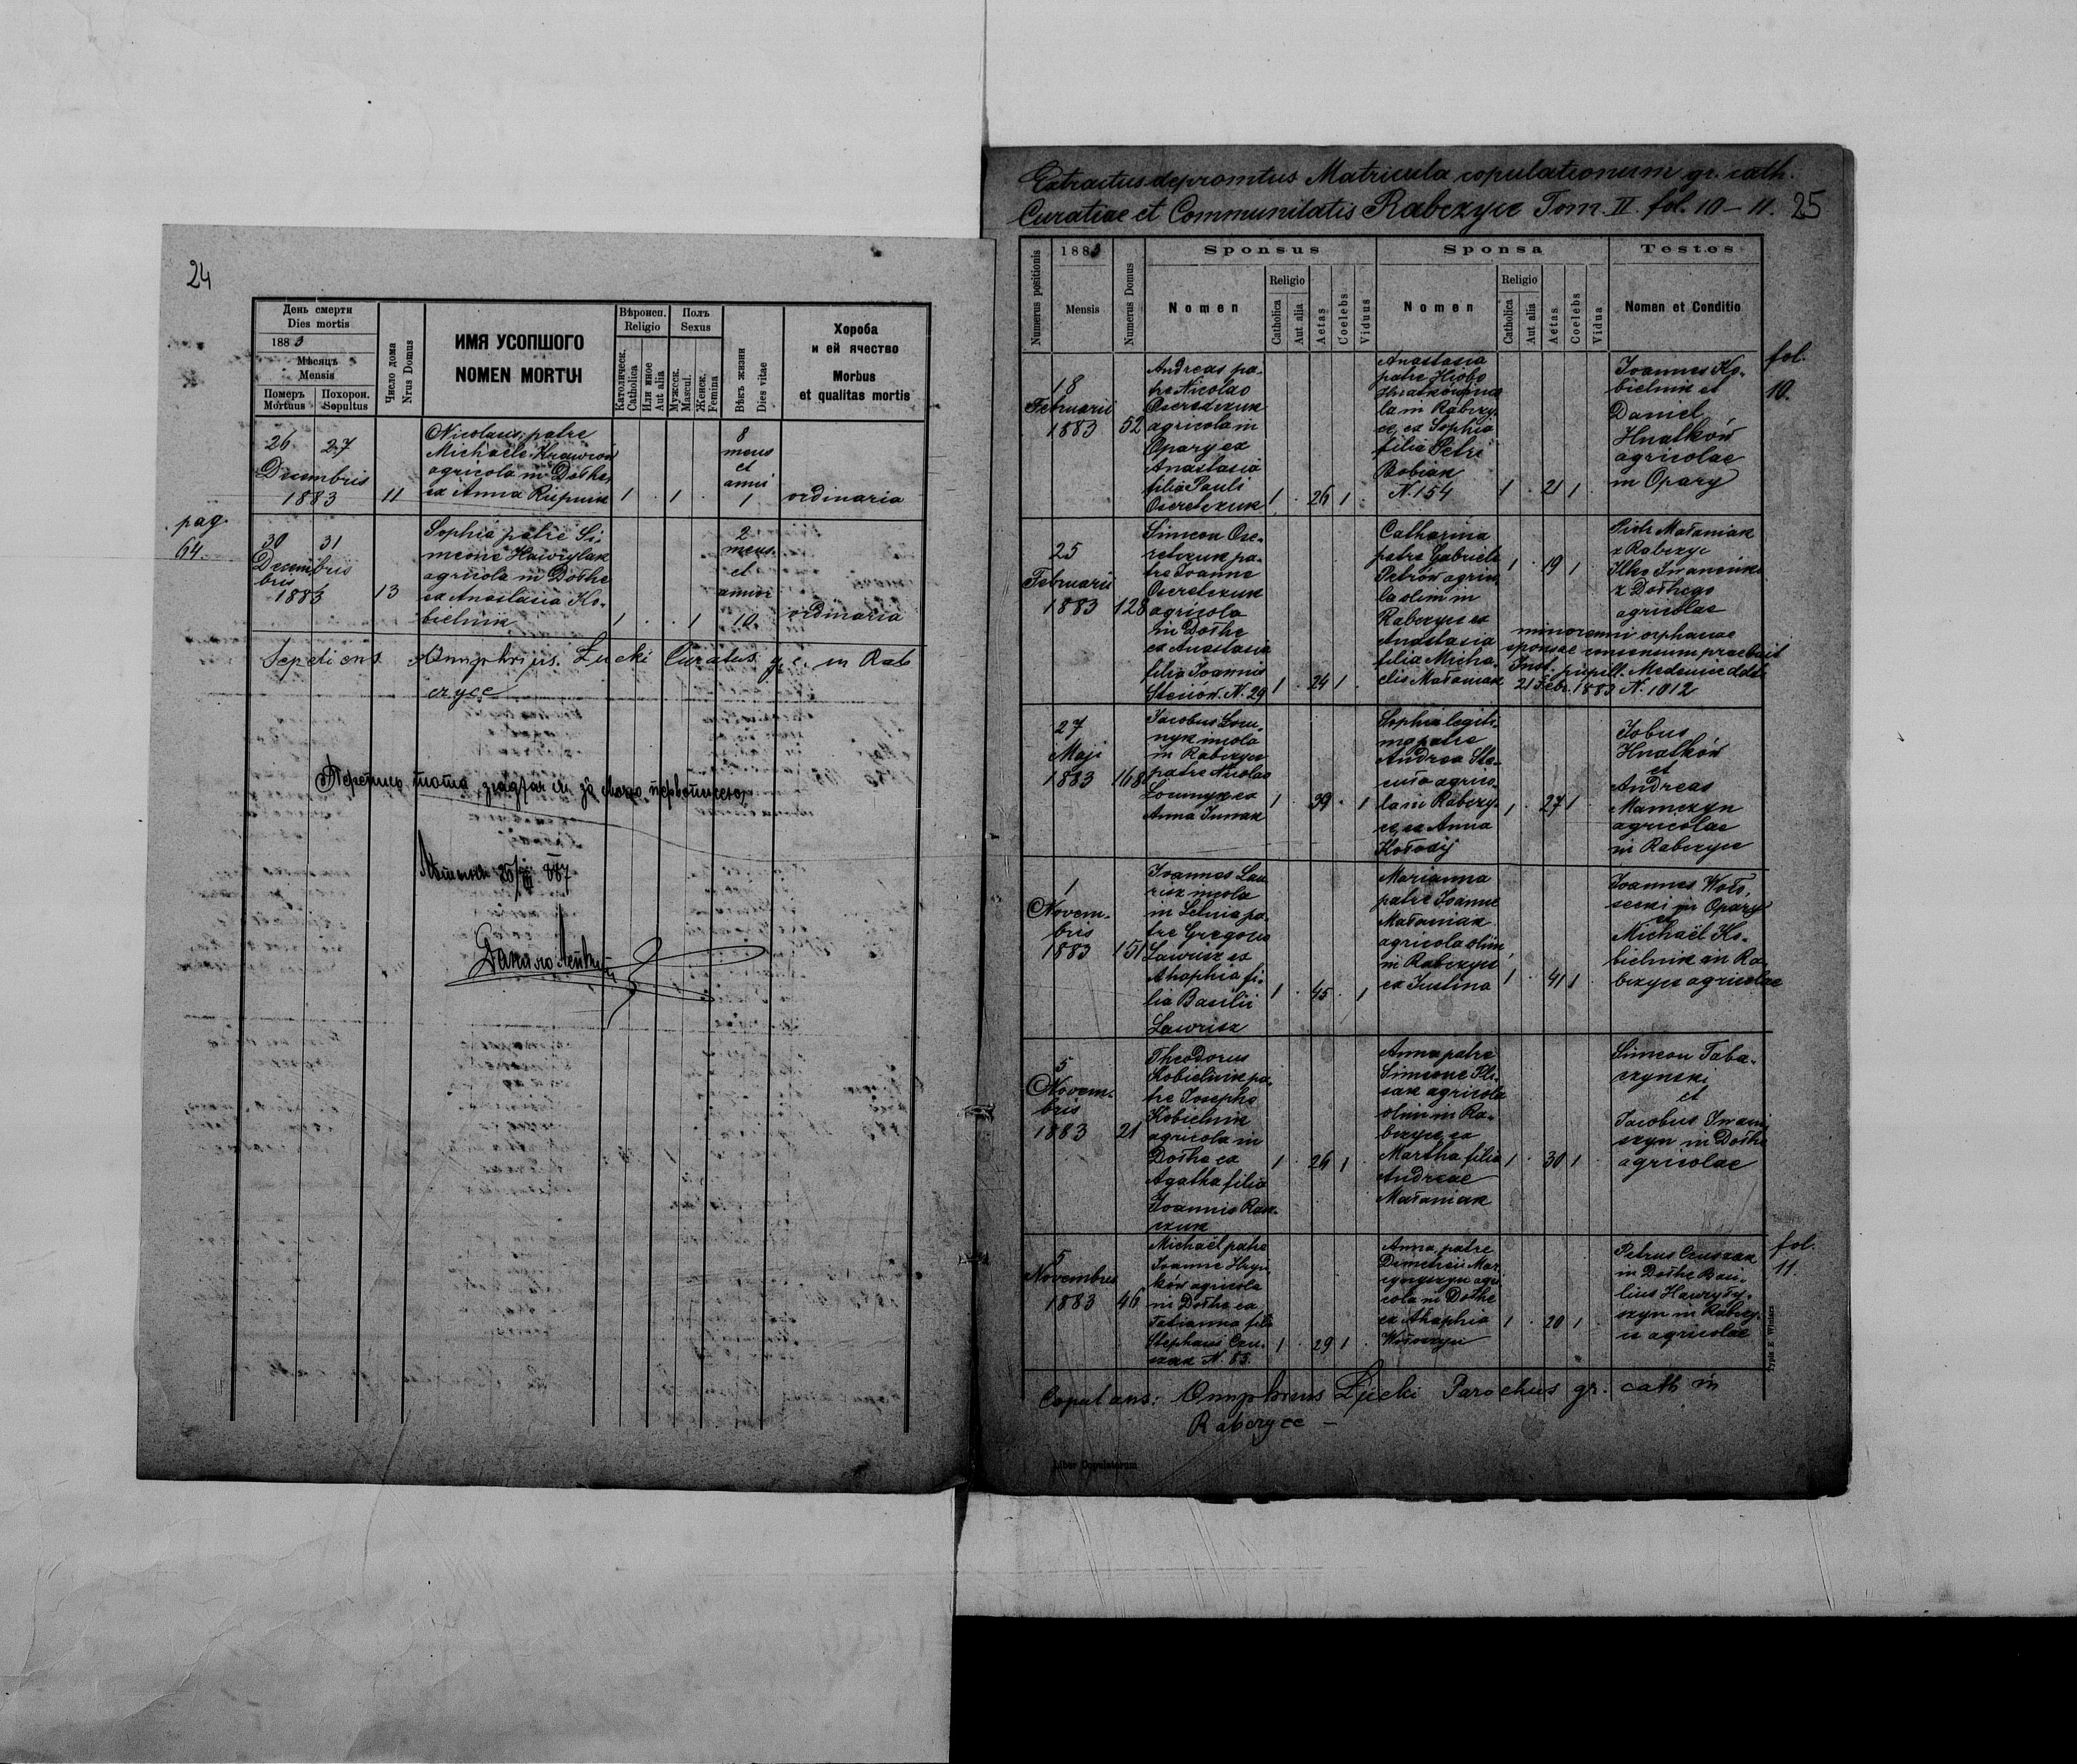 24
День смерти
Dies mortis
1883
Мѣсяцъ
Mensis
Померъ
Mortuus
Похорон.
Sepultus
Число дома
Nrus Domus
ИМЯ УСОПШОГО
NOMEN MORTUI
Вѣроисп.
Religio
Католическ.
Catholica
Или иное
Aut alia
Полъ
Sexus
Мужеск.
Mascul.
Женск.
Femina
Вѣкъ жизни
Dies vitae
Хороба
и ей ячество
Morbus
et qualitas mortis
26 27
Decembris
1883
11
Nicolaus, patre
Michaele Krawców
agricola in Dołhe,
ex Anna Riepnik
1 . 1 .
8
mens
et
anni
1
ordinaria
pag.
64.
30 31
Decembris
1883
13
Sophia patre Si-
meone Hawrylak
agricola in Dołhe
ex Anastasia Ko-
bielnik
1 . . 1
2
mens.
et
annor
10.
ordinaria
Sepeliens Onuphrius Łucki Curatus g. c. in Rab
czyce
25/III 887
Extractus depromtus Matricula copulationum gr. cath.
Curatiae et Communitatis Rabczyce Tom. II. fol. 10–11. 25
Numerus positionis
1883
Mensis
Numerus Domus
Sponsus
Nomen
Religio
Catholica
Aut alia
Aetas
Coelebs
Viduus
Sponsa
Nomen
Religio
Catholica
Aut alia
Aetas
Coelebs
Vidua
Testes
Nomen et Conditio
fol.
10.
18
Februarii
1883
52
Andreas pa-
tre Nicolao
Oseredczuk
agricola in
Opary ex
Anastasia
filia Pauli
Oseredczuk
1 . 26 1 .
Anastasia
patre Hiobo
Hnatków agrico
la in Rabczy-
ce, ex Sophia
filia Petri
Bobiak
N. 154
1 . 21 1 .
Joannes Ko-
bielnik et
Daniel
Hnatków
agricolae
in Opary
25
Februarii
1883
128
Simeon Ose-
retczuk pa-
tre Joanne
Oseretczuk
agricola
in Dołhe
ex Anastasia
filia Joannis
Steciów. N. 29
1 . 24 1 .
Catharina
patre Gabriele
Petrów agrico
la olim in
Rabczyce ex
Anastasia
filia Micha-
elis Małaniak
1 . 19 1 .
Piotr Małaniak
z Rabczyc
Ilko Iwanciuk
z Dołhego
agricolae
minorenni orphanae
sponsae consensum praebuit
Inst. pupill. Medenice ddto
21 Febr. 1883 N. 1012
27
Maji
1883
168
Jacobus Łoza-
nyk incola
in Rabczyce
patre Nicolao
1 . 39 . 1
Sophia legiti-
ma patre
Andrea Ste-
agrico-
la in Rabczy-
ce, ex Anna
Kołodij
1 . 27 1 .
Jobus
Hnatków
et
Andreas
Mamczyn
agricolae
in Rabczyce
1
Novem-
bris
1883
151
Joannes Law-
risz incola
in Letnia pa-
tre Gregorio
Lawrisz ex
Ahaphia fi-
lia Basilii
Lawrisz
1 . 45 . 1
Marianna
patre Joanne
Małaniak
agricola olim
in Rabczyce
ex Justina
1 . 41 1 .
Joannes Woło-
secki in Opary
et
Michaël Ko-
bielnik in Ra-
bczyce agricolae
5
Novem-
bris
1883
21
Theodorus
Kobielnik pa-
tre Josepho
Kobielnik
agricola in
Dołhe ex
Agatha filia
Joannis Rasz-
czuk
1 . 26 1 .
Anna patre
Simeone Ple-
sak agricola
olim in Ra-
bczyce, ex
Martha filia
Andreae
Małaniak
1 . 30 1 .
Simeon Taba-
czynski
et
Jacobus Iwani
szyn in Dołhe
agricolae
fol.
11
5
Novembris
1883
46
Michaël patre
Joanne Hryn-
ków agricola
in Dołhe ex
Tatianna filia
Stephani Czu-
szak N. 83.
1 . 29 1 .
Anna, patre
Demetrii
agri-
cola in Dołhe
ex Ahaphia
Wołoszyn
1 . 20 1 .
Petrus Czuszak
in Dołhe Basi-
lius Hawryły-
szyn in Rabczy-
ce agricolae
Copulans: Onuphrius Łucki Parochus gr. cath in
Rabczyce –
Liber Copulatorum
Typis E. Winiarz